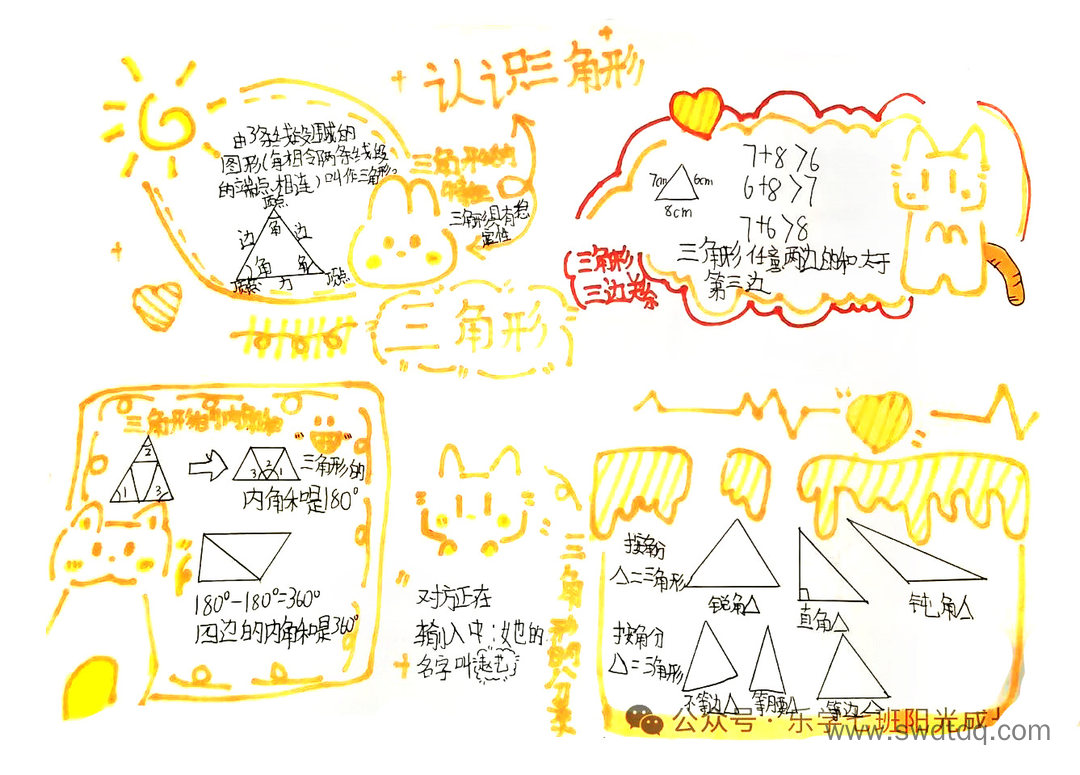 认识三角形
由3条线段围成的
图形(每相邻两条线段
的端点相连)叫作三角形。
顶点
边
角
边
角
角
顶点
顶点
三角形的
特性
三角形具有稳
定性
7+8>6
6+8>7
7+6>8
7cm
6cm
8cm
三角形任意两边的和大于
第三边
三角形
三边关系
三角形
三角形的内角和
2
1
3
3
2
1
三角形的
内角和是180°
180°-180°=360°
四边的内角和是360°
对方正在
输入中:她的
名字叫
三角形的分类
按角分
△=三角形
锐角△
直角△
钝角△
按角分
△=三角形
不等边△
等腰△
等边△
公众号·乐学七班阳光成
www.swdtdq.com